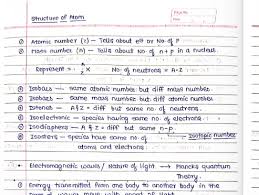 Structure of Atom
Atomic number (z) - Tells about e⊖ or No of P
Mass number - Tells about No of n+p in a nucleus.
Represent = A Z X No of neutrons = A-Z
Isobars - same atomic number but diff mass number.
Isobars - Same mass number but diff atomic number.
Isotones - A≠Z diff but same no of neutrons.
Isoelectronic - species having same no of electrons.
Isodiaphers - A≠Z diff but same n-p.
Isosters - species have same no of Isotopic number
atoms and electrons
Electromagnetic waves / Nature of light → Planck's quantum
Theory.
Energy transmitted from one body to another body in the